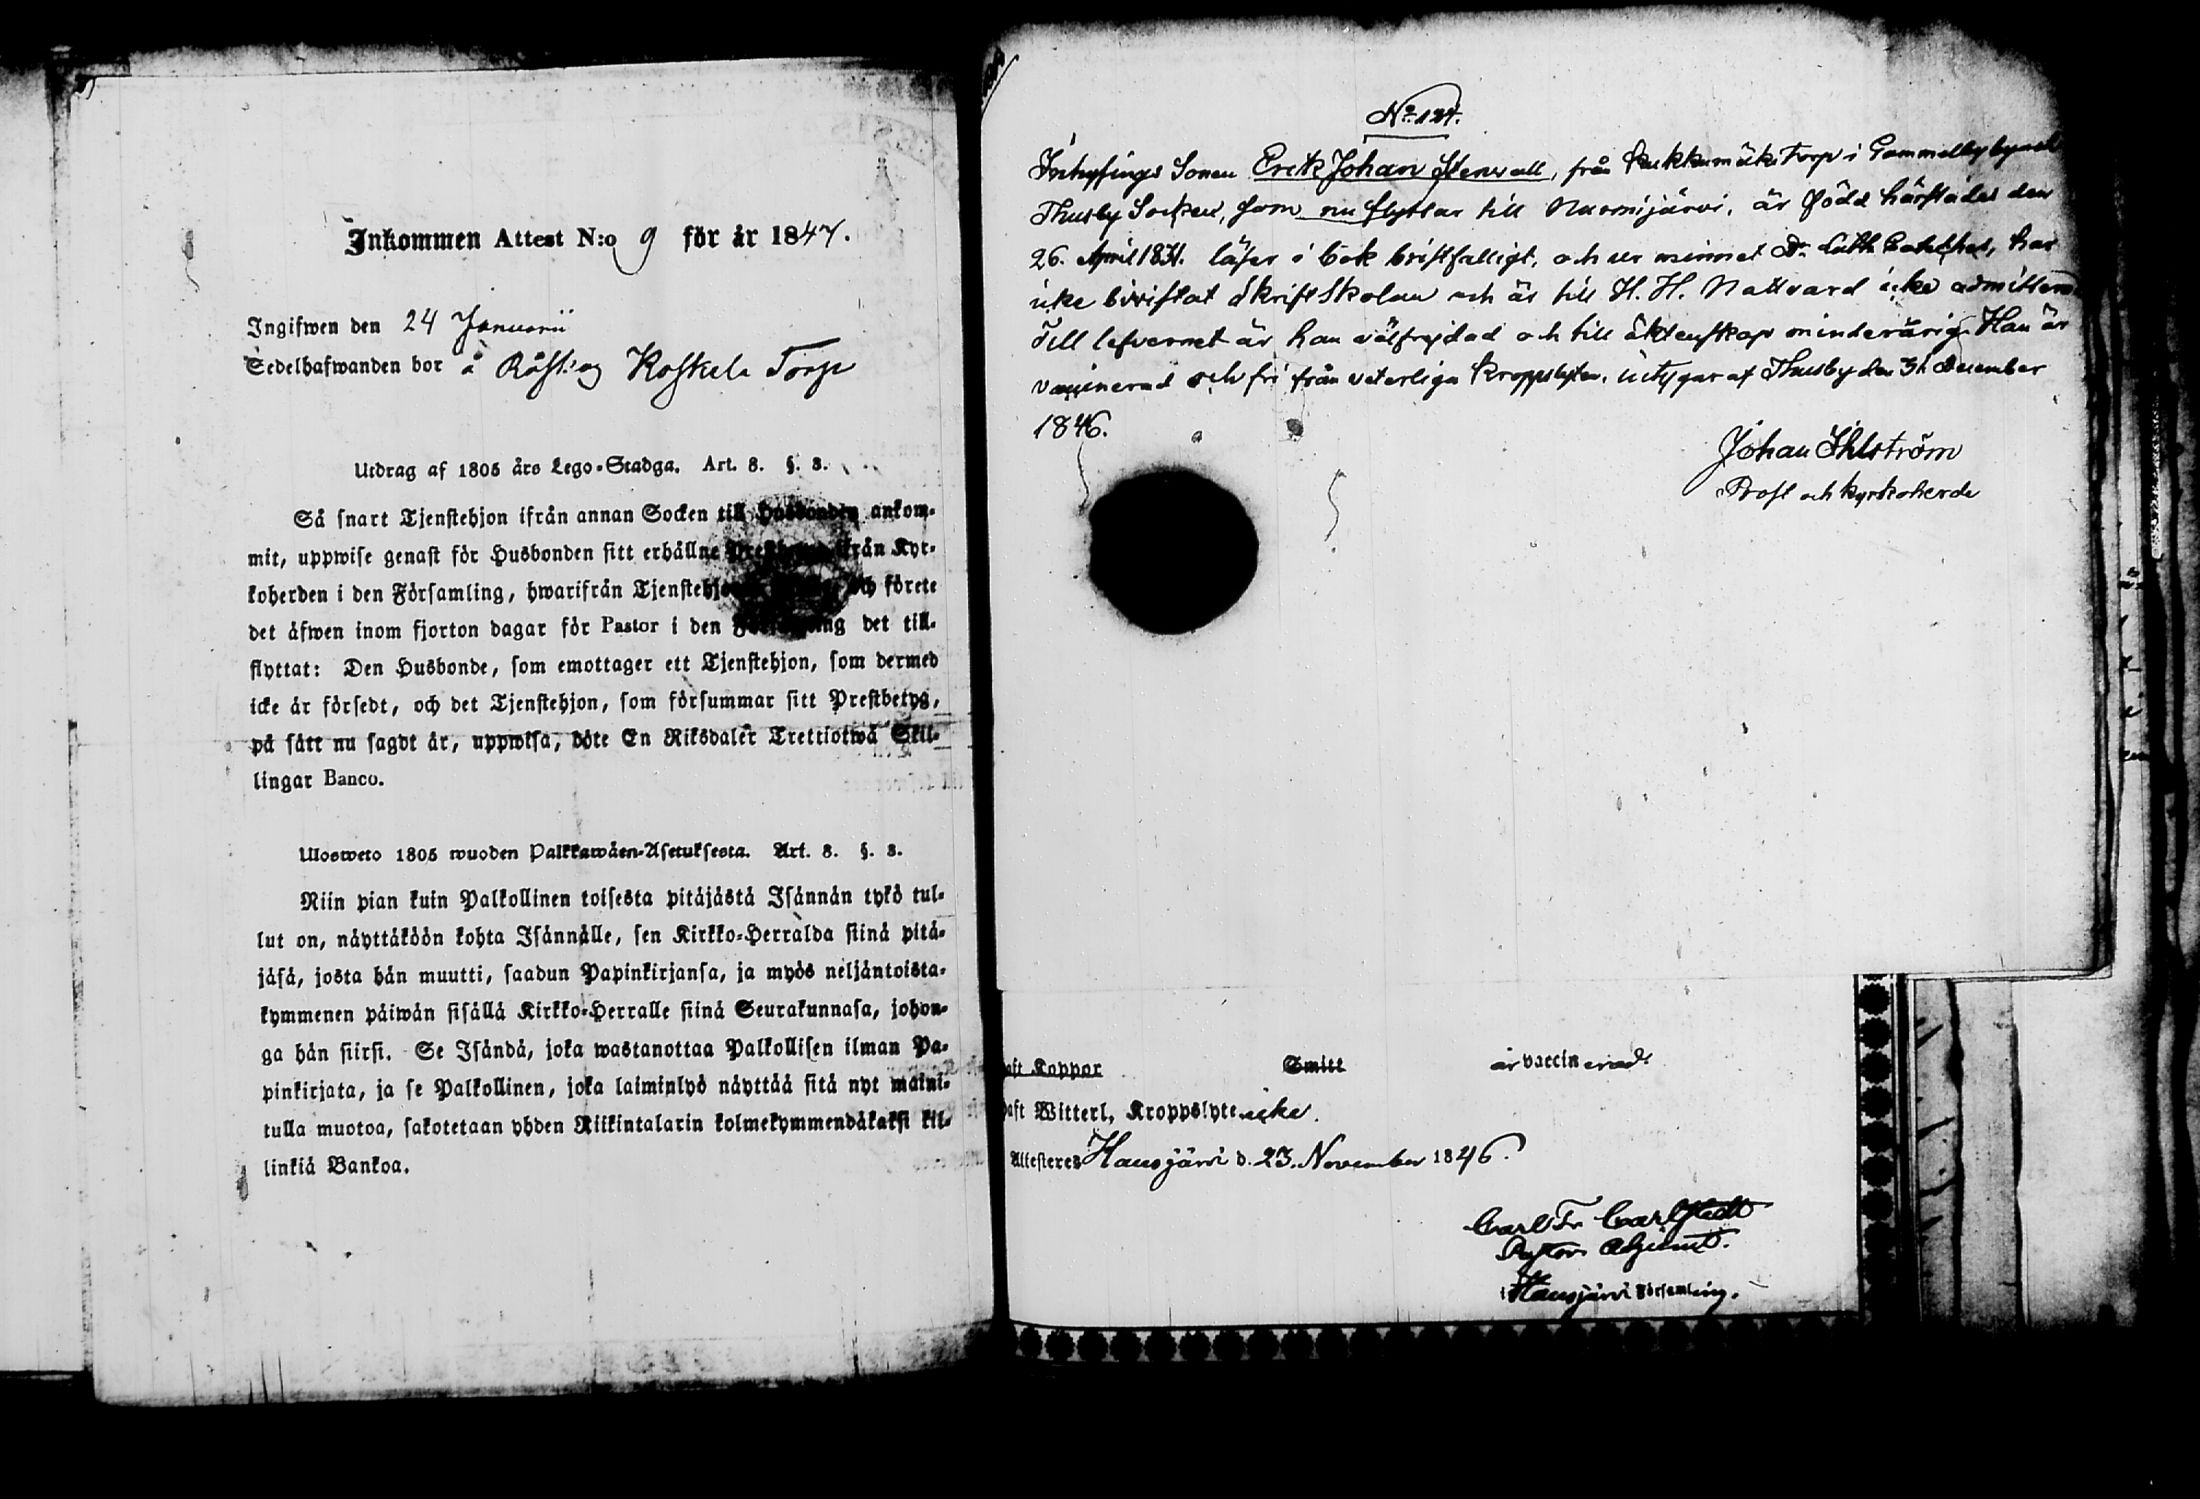 Inkommen Attest N:o 9 för år 1847.
Ingifwen den 24 Januarii
Sedelhafwanden bor å Torp
Utdrag af 1805 års Lego-Stadga. Art. 8. §. 3.
Så snart Tjenstehjon ifrån annan Socken till Husbonden ankom-
mit, uppwise genast för Husbonden sitt erhållne ifrån Kyr-
koherden i den Församling, hwarifrån och förete
det äfwen inom fjorton dagar för Pastor i den Församling det till-
flyttat: Den Husbonde, som emottager ett Tjenstehjon, som dermed
icke är försedt, och det Tjenstehjon, som försummar sitt Prestbetyg,
på sätt nu sagdt är, uppwisa, böte En Riksdaler Trettiotwå Skil-
lingar Banco.
Ulosweto 1805 wuoden Palkkawäen-Asetuksesta. Art. 8. §. 3.
Niin pian kuin Palkollinen toisesta pitäjästä Isännän tykö tul-
lut on, näyttäköön kohta Isännälle, sen Kirkko-Herralda siinä pitä-
jäsä, josta hän muutti, saadun Papinkirjansa, ja myös neljäntoista-
kymmenen päiwän sisällä Kirkko-Herralle siinä Seurakunnasa, johon-
ga hän siirsi. Se Isändä, joka wastanottaa Palkollisen ilman Pa-
pinkirjata, ja se Palkollinen, joka laiminlyö näyttää sitä nyt maini-
tulla muotoa, sakotetaan yhden Riikintalarin kolmekymmendäkaksi kil-
linkiä Bankoa.
No 124.
Inhysings Sonen Erik Johan Stenvall, från Torp i Gammelby
Thusby Socken, som nu flyttar till Nurmijärvi, är född härstädes den
26. April 1831. läser i bok bristfälligt, och ur minnet Dr. Luth. Catches, har
icke bivistat Skriftskolan och är till H. H. Nattvard icke
Till lefvernet är han välfrejdad och till äktenskap minderårig. Han är
vaccinerad och fri från veterliga kroppslyten, intygar af Thusby den 31 December
1846.
Johan Ihlström
Prost och Kyrkoherde
aft Koppor Smitt är vaccinerad.
haft Witterl. Kroppslyte icke.
Attesteres Hausjärvi d. 23. November 1846.
Carl Fr. Carlstedt
Pastors Adjunct.
i Hausjärvi Församling.